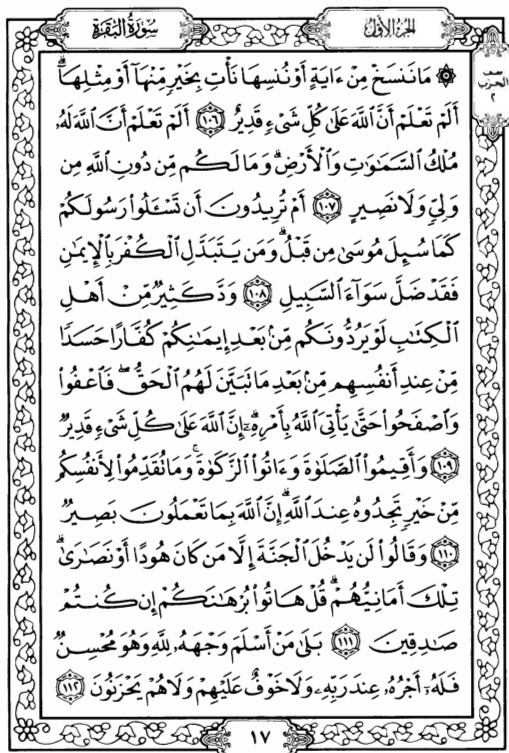 سورة البقرة
الجزء الأول
نصف
الحزب
٢
۞ مَا نَنسَخْ مِنْ ءَايَةٍ أَوْ نُنسِهَا نَأْتِ بِخَيْرٍ مِّنْهَآ أَوْ مِثْلِهَآۗ
أَلَمْ تَعْلَمْ أَنَّ ٱللَّهَ عَلَىٰ كُلِّ شَىْءٍ قَدِيرٌ ۝١٠٦ أَلَمْ تَعْلَمْ أَنَّ ٱللَّهَ لَهُۥ
مُلْكُ ٱلسَّمَٰوَٰتِ وَٱلْأَرْضِۗ وَمَا لَكُم مِّن دُونِ ٱللَّهِ مِن
وَلِىٍّ وَلَا نَصِيرٍ ۝١٠٧ أَمْ تُرِيدُونَ أَن تَسْـَٔلُوا۟ رَسُولَكُمْ
كَمَا سُئِلَ مُوسَىٰ مِن قَبْلُۗ وَمَن يَتَبَدَّلِ ٱلْكُفْرَ بِٱلْإِيمَٰنِ
فَقَدْ ضَلَّ سَوَآءَ ٱلسَّبِيلِ ۝١٠٨ وَدَّ كَثِيرٌ مِّنْ أَهْلِ
ٱلْكِتَٰبِ لَوْ يَرُدُّونَكُم مِّنۢ بَعْدِ إِيمَٰنِكُمْ كُفَّارًا حَسَدًا
مِّنْ عِندِ أَنفُسِهِم مِّنۢ بَعْدِ مَا تَبَيَّنَ لَهُمُ ٱلْحَقُّۖ فَٱعْفُوا۟
وَٱصْفَحُوا۟ حَتَّىٰ يَأْتِىَ ٱللَّهُ بِأَمْرِهِۦٓۗ إِنَّ ٱللَّهَ عَلَىٰ كُلِّ شَىْءٍ قَدِيرٌ
۝١٠٩ وَأَقِيمُوا۟ ٱلصَّلَوٰةَ وَءَاتُوا۟ ٱلزَّكَوٰةَۚ وَمَا تُقَدِّمُوا۟ لِأَنفُسِكُم
مِّنْ خَيْرٍ تَجِدُوهُ عِندَ ٱللَّهِۗ إِنَّ ٱللَّهَ بِمَا تَعْمَلُونَ بَصِيرٌ
۝١١٠ وَقَالُوا۟ لَن يَدْخُلَ ٱلْجَنَّةَ إِلَّا مَن كَانَ هُودًا أَوْ نَصَٰرَىٰۗ
تِلْكَ أَمَانِيُّهُمْۗ قُلْ هَاتُوا۟ بُرْهَٰنَكُمْ إِن كُنتُمْ
صَٰدِقِينَ ۝١١١ بَلَىٰ مَنْ أَسْلَمَ وَجْهَهُۥ لِلَّهِ وَهُوَ مُحْسِنٌ
فَلَهُۥٓ أَجْرُهُۥ عِندَ رَبِّهِۦ وَلَا خَوْفٌ عَلَيْهِمْ وَلَا هُمْ يَحْزَنُونَ ۝١١٢
١٧